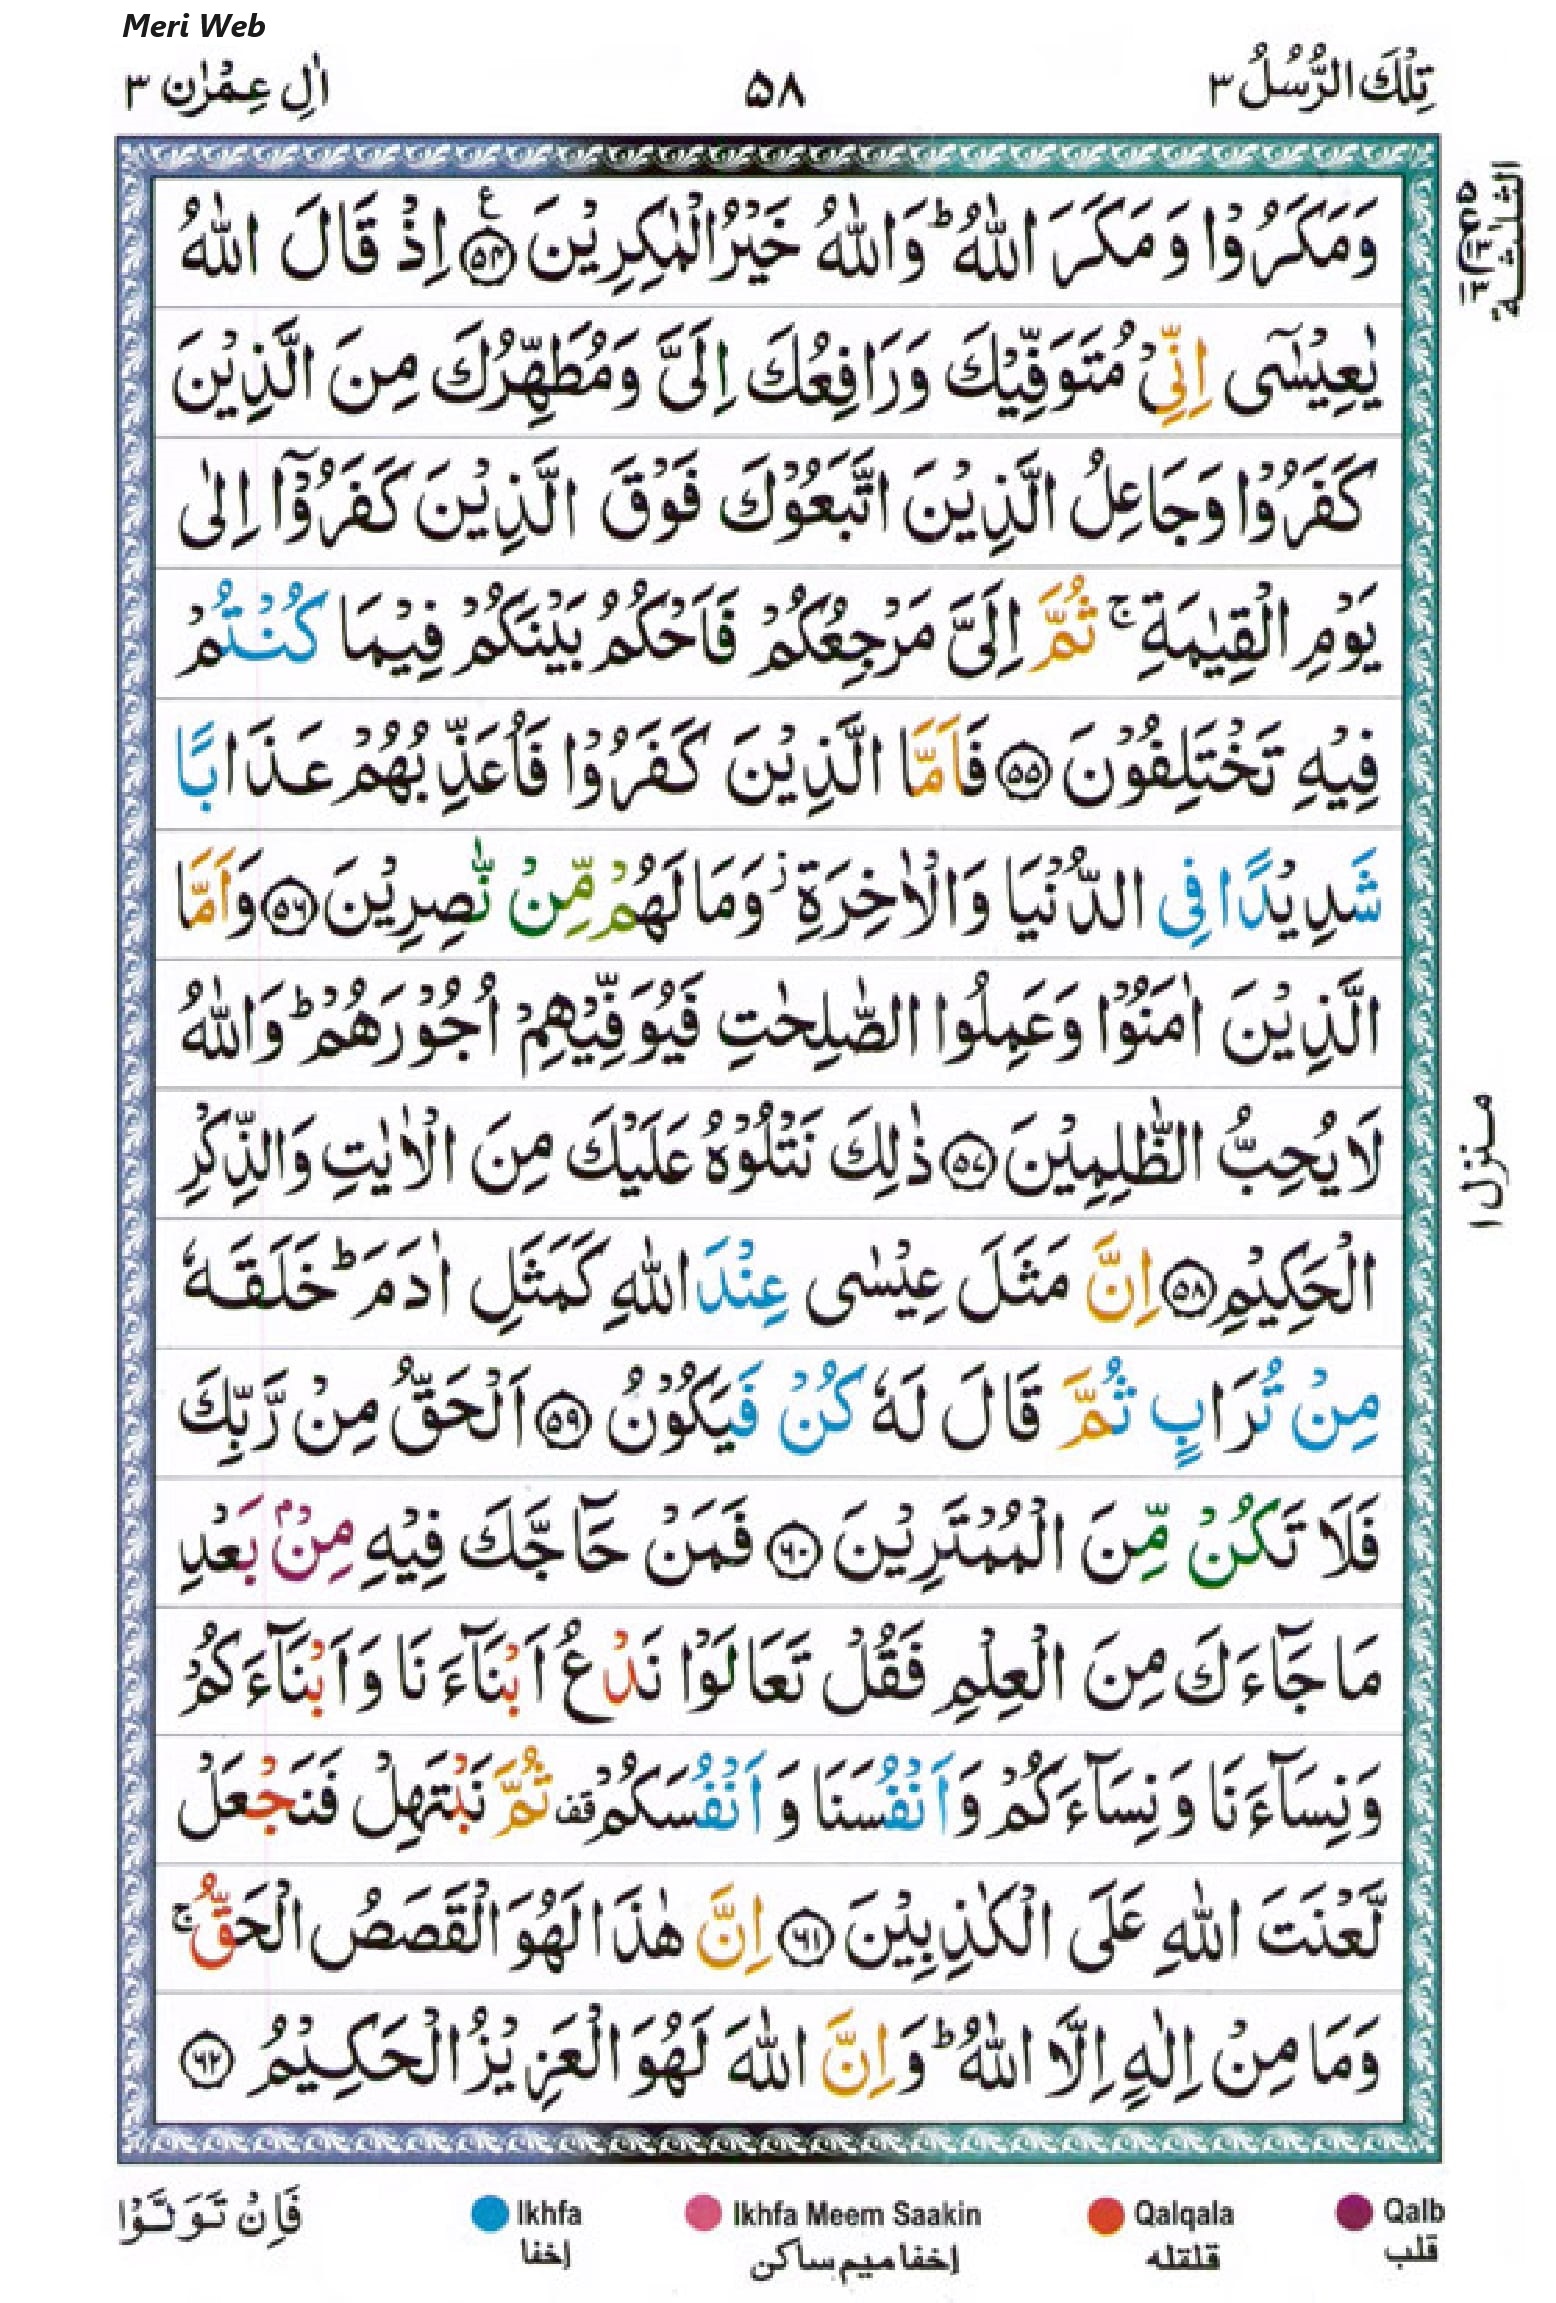 Meri Web
تِلْكَ الرُّسُلُ ٣
٥٨
اٰلِ عِمْرٰن ٣
وَمَكَرُوْا وَمَكَرَ اللّٰهُ ؕ وَاللّٰهُ خَيْرُ الْمٰكِرِيْنَ ﴿۵۴﴾ ع اِذْ قَالَ اللّٰهُ
يٰعِيْسٰۤى اِنِّىْ مُتَوَفِّيْكَ وَرَافِعُكَ اِلَىَّ وَمُطَهِّرُكَ مِنَ الَّذِيْنَ
كَفَرُوْا وَجَاعِلُ الَّذِيْنَ اتَّبَعُوْكَ فَوْقَ الَّذِيْنَ كَفَرُوْۤا اِلٰى
يَوْمِ الْقِيٰمَةِ ۚ ثُمَّ اِلَىَّ مَرْجِعُكُمْ فَاَحْكُمُ بَيْنَكُمْ فِيْمَا كُنْتُمْ
فِيْهِ تَخْتَلِفُوْنَ ﴿۵۵﴾ فَاَمَّا الَّذِيْنَ كَفَرُوْا فَاُعَذِّبُهُمْ عَذَابًا
شَدِيْدًا فِى الدُّنْيَا وَالْاٰخِرَةِ ز وَمَا لَهُمْ مِّنْ نّٰصِرِيْنَ ﴿۵۶﴾ وَاَمَّا
الَّذِيْنَ اٰمَنُوْا وَعَمِلُوا الصّٰلِحٰتِ فَيُوَفِّيْهِمْ اُجُوْرَهُمْ ؕ وَاللّٰهُ
لَا يُحِبُّ الظّٰلِمِيْنَ ﴿۵۷﴾ ذٰلِكَ نَتْلُوْهُ عَلَيْكَ مِنَ الْاٰيٰتِ وَالذِّكْرِ
الْحَكِيْمِ ﴿۵۸﴾ اِنَّ مَثَلَ عِيْسٰى عِنْدَ اللّٰهِ كَمَثَلِ اٰدَمَ ؕ خَلَقَهٗ
مِنْ تُرَابٍ ثُمَّ قَالَ لَهٗ كُنْ فَيَكُوْنُ ﴿۵۹﴾ اَلْحَقُّ مِنْ رَّبِّكَ
فَلَا تَكُنْ مِّنَ الْمُمْتَرِيْنَ ﴿۶۰﴾ فَمَنْ حَآجَّكَ فِيْهِ مِنْۢ بَعْدِ
مَا جَآءَكَ مِنَ الْعِلْمِ فَقُلْ تَعَالَوْا نَدْعُ اَبْنَآءَنَا وَاَبْنَآءَكُمْ
وَنِسَآءَنَا وَنِسَآءَكُمْ وَاَنْفُسَنَا وَاَنْفُسَكُمْ قف ثُمَّ نَبْتَهِلْ فَنَجْعَلْ
لَّعْنَتَ اللّٰهِ عَلَى الْكٰذِبِيْنَ ﴿۶۱﴾ اِنَّ هٰذَا لَهُوَ الْقَصَصُ الْحَقُّ ۚ
وَمَا مِنْ اِلٰهٍ اِلَّا اللّٰهُ ؕ وَاِنَّ اللّٰهَ لَهُوَ الْعَزِيْزُ الْحَكِيْمُ ﴿۶۲﴾
الثلٰثة
ع
۱۳
منزل ۱
فَاِنْ تَوَلَّوْا
Ikhfa
إخفا
Ikhfa Meem Saakin
إخفا ميم ساكن
Qalqala
قلقله
Qalb
قلب